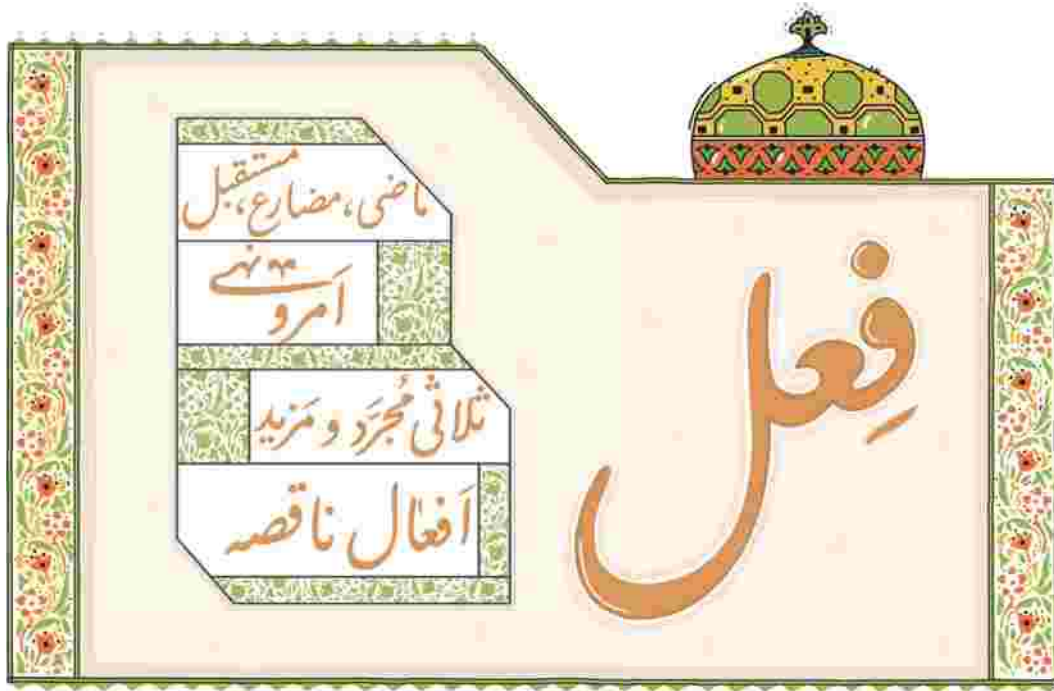 فِعل
ماضی، مضارع، مستقبل
اَمر و نهی
ثلاثی مُجرَّد و مَزید
اَفعال ناقصه